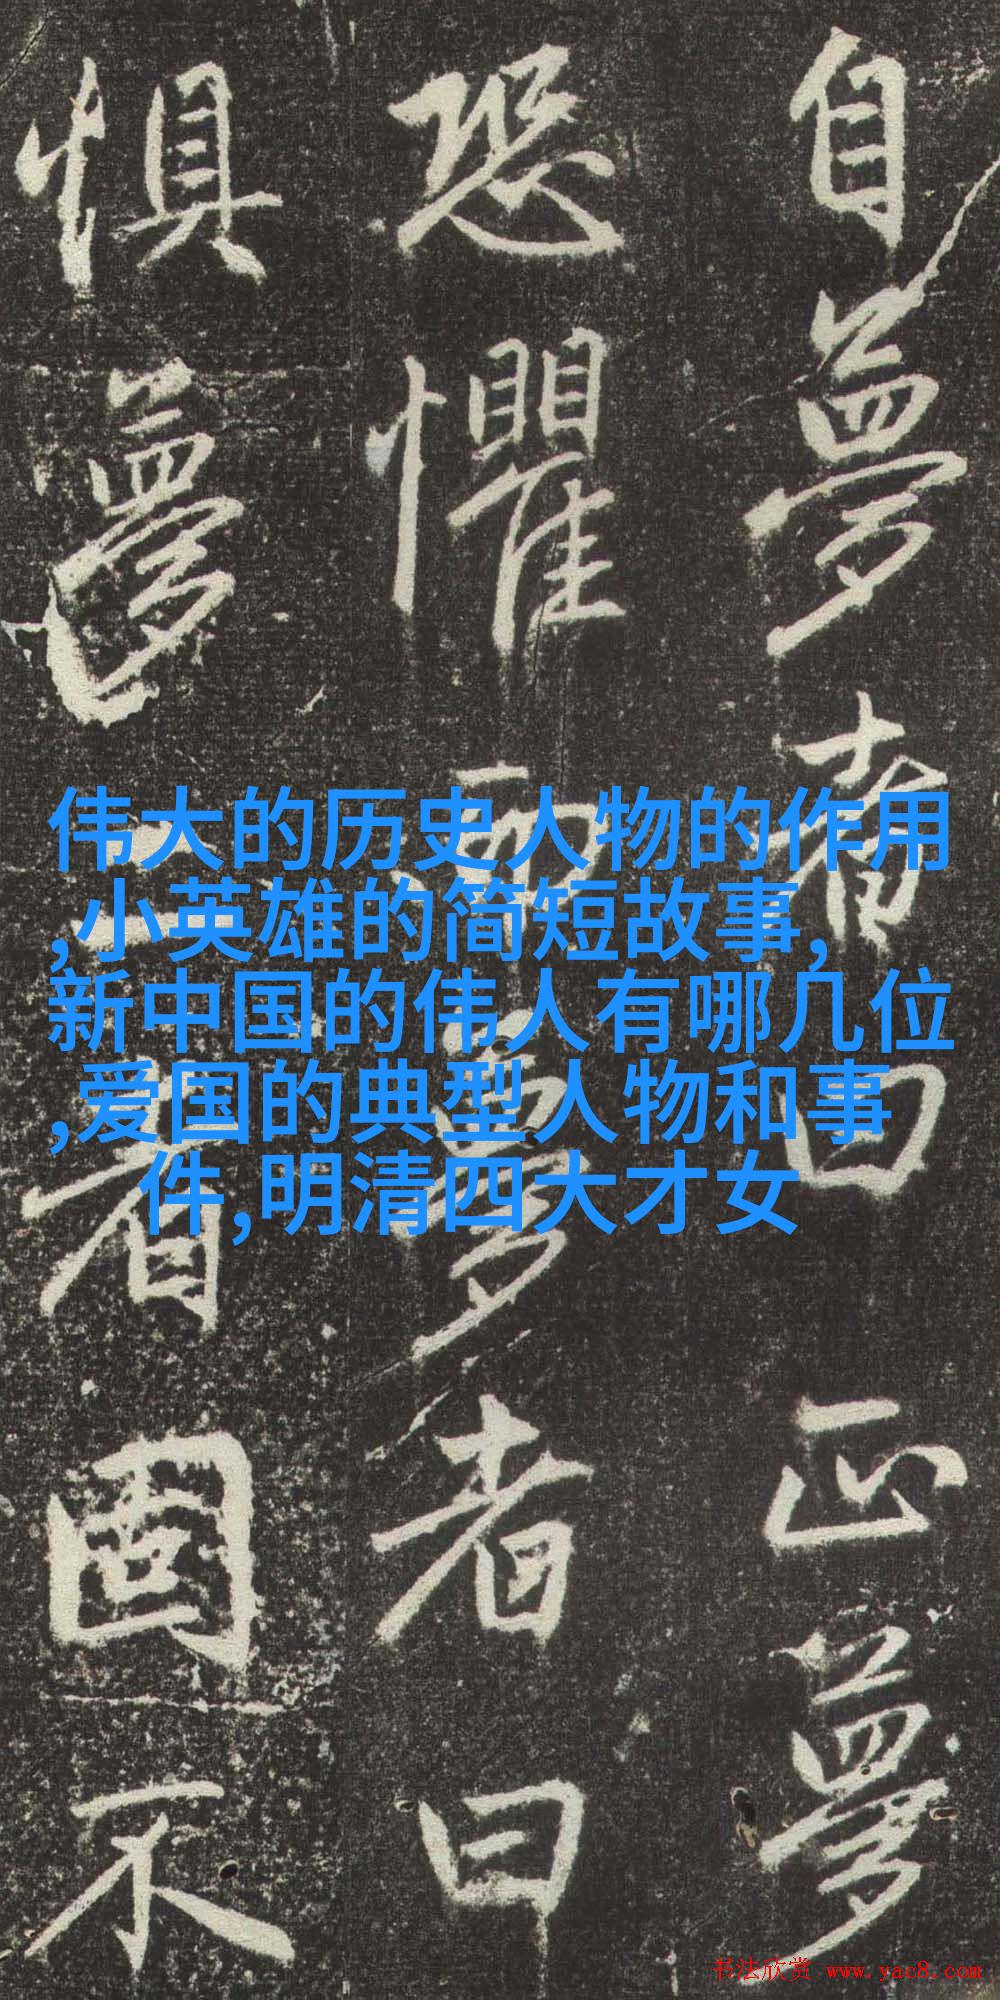 自夢者曰正夢
恐懼而夢者曰
惧夢二者固不
伟大的历史人物的作用
,小英雄的简短故事,
新中国的伟人有哪几位
,爱国的典型人物和事
件,明清四大才女
书法欣赏 www.yac8.com